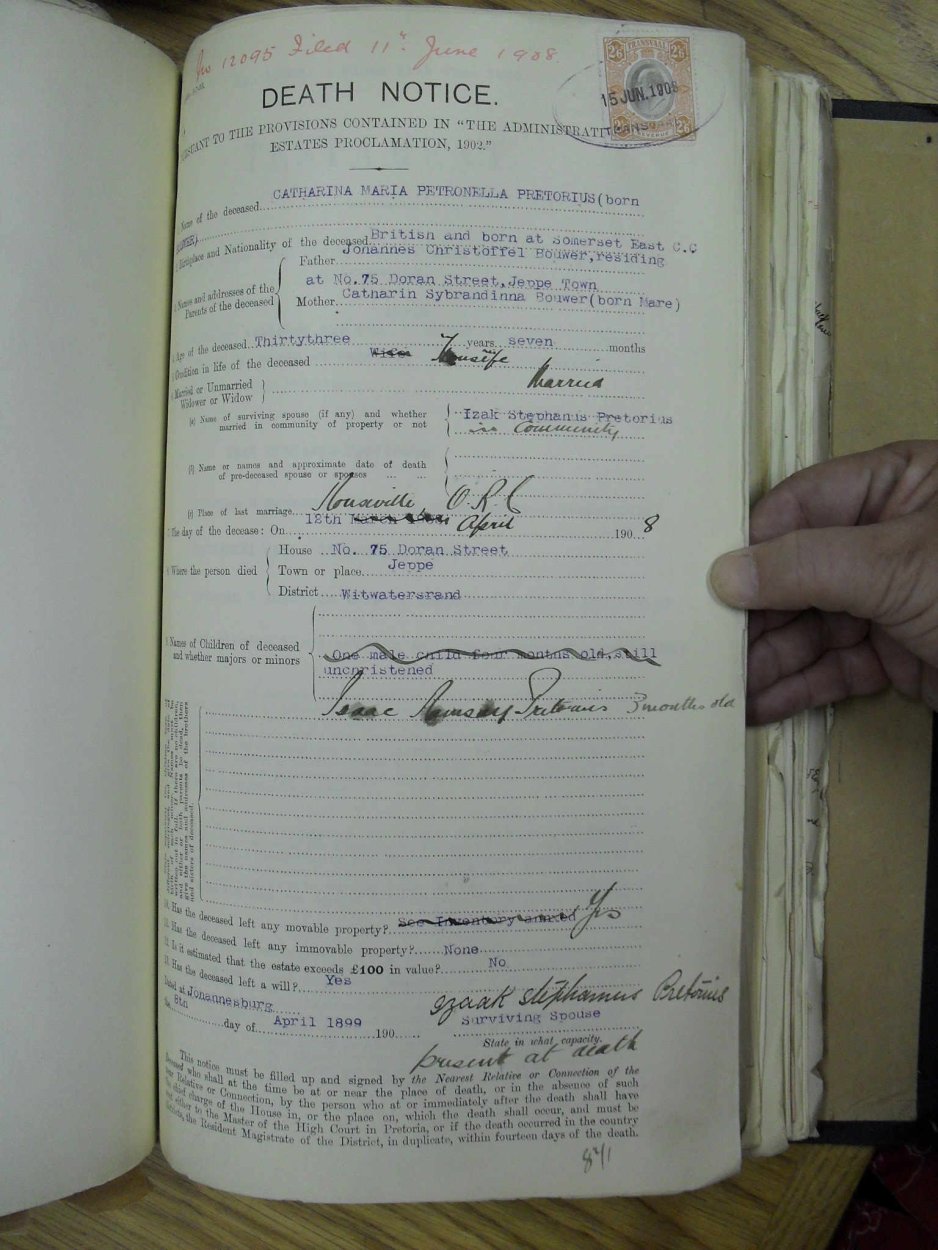 No 12095 Filed 11th June 1908
TRANSVAAL
2/6 2/6
15 JUN. 1908
REVENUE
2/6 2/6
DEATH NOTICE.
TO THE PROVISIONS CONTAINED IN "THE ADMINISTRATI
ESTATES PROCLAMATION, 1902."
Name of the deceased CATHARINA MARIA PETRONELLA PRETORIUS(born
Birthplace and Nationality of the deceased British and born at Somerset East C.C
Names and addresses of the Parents of the deceased
Father Johannes Christoffel Bouwer,residing
at No.75 Doran Street,Jeppe Town
Mother Catharin Sybrandinna Bouwer(born Mare)
Age of the deceased Thirtythree years seven months
Condition in life of the deceased
Married or Unmarried
Widower or Widow
Married
(a) Name of surviving spouse (if any) and whether
married in community of property or not
Izak Stephanus Pretorius
in Community
(b) Name or names and approximate date of death
of pre-deceased spouse or spouses ... ...
(c) Place of last marriage O.R.C
The day of the decease: On 12th April 1908
Where the person died
House No. 75 Doran Street
Town or place Jeppe
District Witwatersrand
Names of Children of deceased
and whether majors or minors
One male child four months old,still
uncpristened
Isaac Ramsay Pretorius 3 months old
Has the deceased left any movable property? See Inventory annxed Yes
Has the deceased left any immovable property? None
Is it estimated that the estate exceeds £100 in value? No
Has the deceased left a will? Yes
Dated at Johannesburg
the 8th day of April 1899 190
Izaak Stephanus Pretorius
Surviving Spouse
State in what capacity.
present at death
This notice must be filled up and signed by the Nearest Relative or Connection of the
Deceased who shall at the time be at or near the place of death, or in the absence of such
near Relative or Connection, by the person who at or immediately after the death shall have
the chief charge of the House in, or the place on, which the death shall occur, and must be
sent either to the Master of the High Court in Pretoria, or if the death occurred in the country
districts, the Resident Magistrate of the District, in duplicate, within fourteen days of the death.